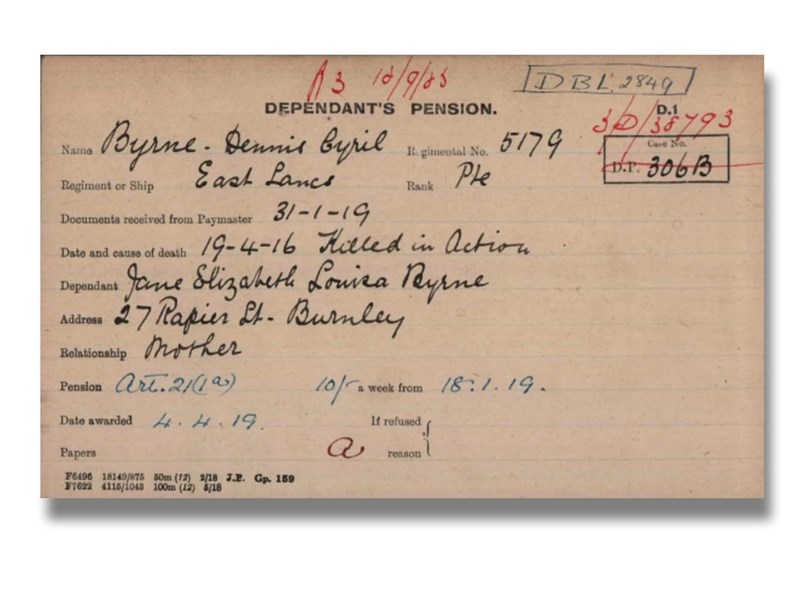 DBL 2849
DEPENDANT'S PENSION. D.1
3/D/38793
Name Byrne - Dennis Cyril Regimental No. 5179
Case No.
D.P. 306B
Regiment or Ship East Lancs Rank Pte
Documents received from Paymaster 31-1-19
Date and cause of death 19-4-16 Killed in Action
Dependant Jane Elizabeth Louisa Byrne
Address 27 Rapier St - Burnley
Relationship Mother
Pension Art. 21(1a) 10/- a week from 18.1.19.
Date awarded 4.4.19. If refused
Papers a reason
F6496 18149/875 50m (12) 2/18 J.P. Gp. 159
F7622 4115/1043 100m (12) 5/18